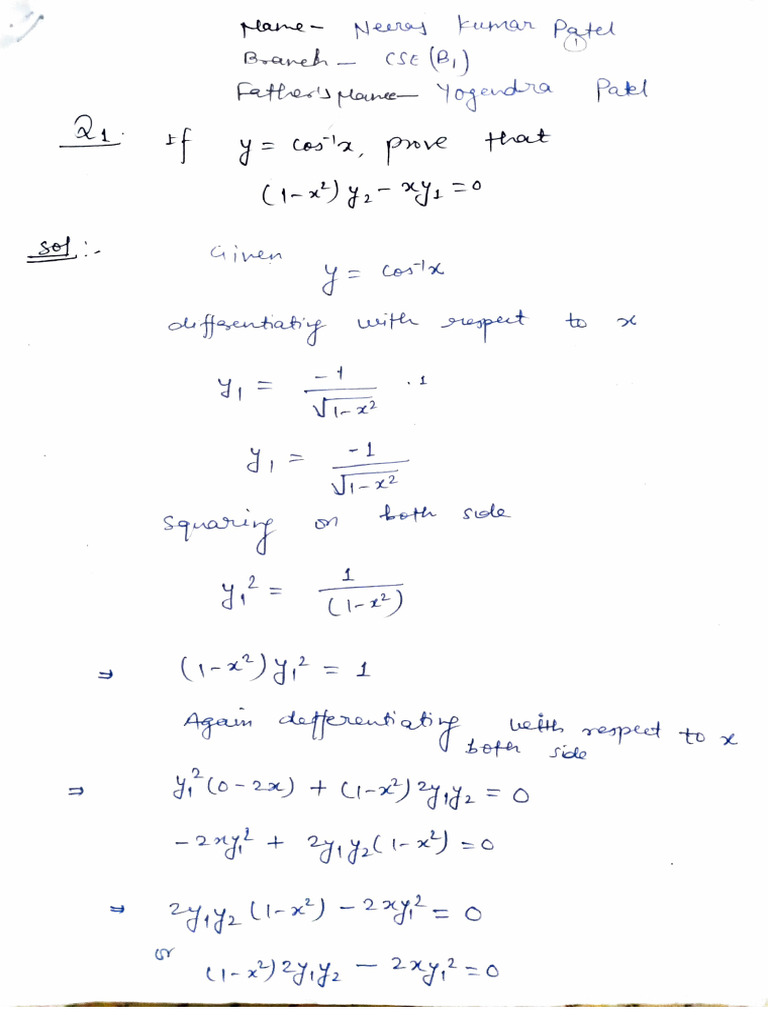 Name - Neeraj Kumar Patel
1
Branch - CSE (B₁)
Father's Name - Yogendra Patel
Q1. If y = cos⁻¹x, prove that
(1-x²) y₂ - xy₁ = 0
Sol:- Given
y = cos⁻¹x
differentiating with respect to x
y₁ = -1/√(1-x²) · 1
y₁ = -1/√(1-x²)
squaring on both side
y₁² = 1/(1-x²)
⇒ (1-x²) y₁² = 1
Again defferentiating with respect to x
both side
⇒ y₁² (0-2x) + (1-x²) 2y₁y₂ = 0
-2xy₁² + 2y₁y₂ (1-x²) = 0
⇒ 2y₁y₂ (1-x²) - 2xy₁² = 0
or
(1-x²) 2y₁y₂ - 2xy₁² = 0